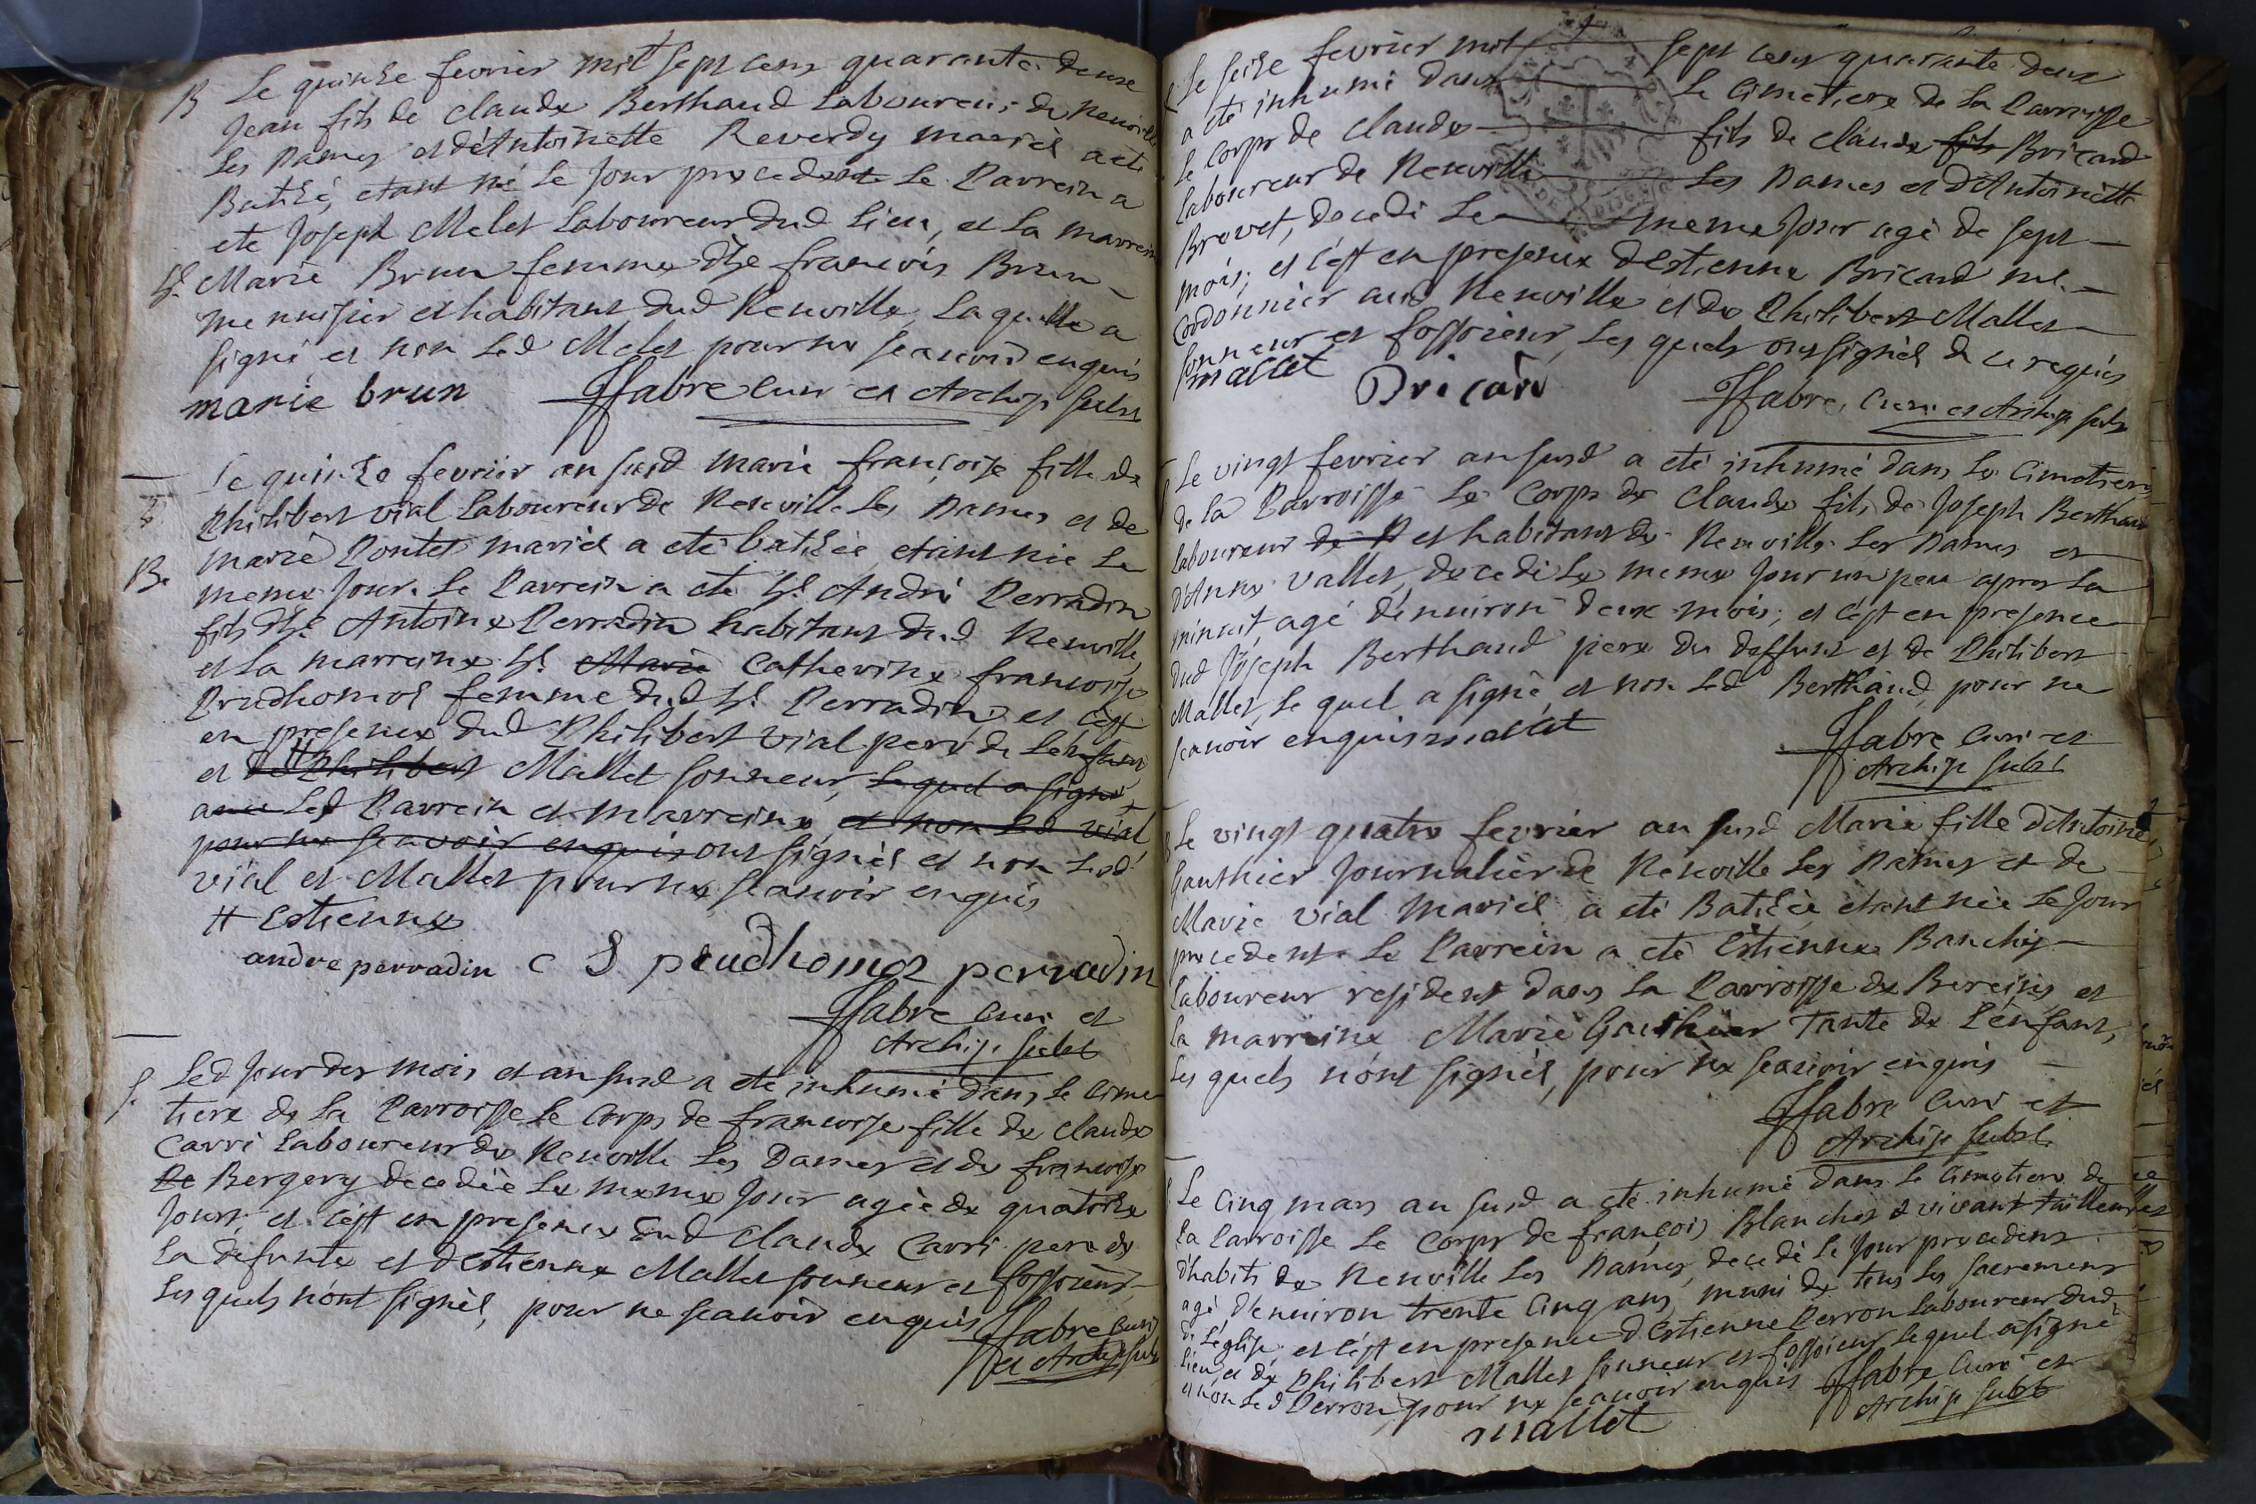 B Le quinze fevrier mil sept cens quarante deux
Jean fils de claude Berthaud Laboureur de Neuville
Les Dames et d'Antoinette Reverdy mariés a eté
Batizé, etant né Le Jour precedent Le Parrein a
eté Joseph Melet Laboureur dud Lieu, et La marreine
Marie Brun femme de francois Brun
menuisier et habitant dud Neuville, Laquelle a
signé et non Led Melet pour ne scavoir enquis
marie brun ffabre curé et Archip subst
Le quinze fevrier an susd marie françoise fille de
Philibert vial Laboureur de Neuville Les Dames et de
B. marie Pontet mariés a eté batizée, etant née Le
meme Jour. Le Parrein a eté Sr. André Perradin
fils de Sr. Antoine Perradin habitant dud Neuville,
et La marreine Sr. Marie Catherine francoise
Prudhomos femme dud Sr. Perradin, et c'est
en presence dud Philibert vial pere de L'enfant
et de Philibert Mallet sonneur, Lequel a signé
avec Led Parrein et Marreine, et non Led vial
pour ne scavoir enquis ont signés et non Lesd
vial et Mallet pour ne scavoir enquis
# Estienne
andre perradin C S prudhomos perradin
ffabre curé et
Archip subst
S. Led Jour des mois et an susd a eté inhumé dans Le Cime
tiere de La Parroisse Le Corps de francoise fille de claude
Carri Laboureur de Neuville Les Dames et de francoise
De Bergery decedée Le meme Jour agée de quatorze
Jours, et c'est en presence dud Claude Carri pere de
La defunte et d'Estienne Mallet sonneur et fossoieur
Les quels n'ont signés, pour ne scavoir enquis
ffabre curé
et Archip subst
Le seize fevrier mil sept cens quarante deux
a eté inhumé dans Le Cimetiere de La Parroisse
Le Corps de claude fils de claude fils Bricard
Laboureur de Neuville Les Dames et d'Antoinette
Brevet, decedé Le meme Jour agé de sept
mois; et c'est en presence d'Estienne Bricard me.
Cordonnier aud Neuville et de Philibert Mallet
sonneur et fossoieur, Les quels ont signés de ce requis
mallet Bricard ffabre, curé et Archip subst
Le vingt fevrier an susd a eté inhumé dans Le Cimetiere
de La Parroisse Le Corps de Claude fils de Joseph Berthaud
Laboureur de N et habitant de Neuville Les Dames et
d'Anne Vallet, decedé Le meme Jour un peu apres La
minuit, agé d'enuiron deux mois; et c'est en presence
dud Joseph Berthaud pere du deffunt et de Philibert
Mallet, Le quel a signé, et non Led Berthaud, pour ne
scavoir enquis mallet ffabre curé et
Archip subst
Le vingt quatre fevrier an susd Marie fille d'Antoine
Gauthier Journalier de Neuville Les Dames et de
Marie vial mariés a eté Batizée etant née Le Jour
precedent. Le Parrein a eté Estienne Banchy
Laboureur resident dans La Parroisse de Bereins, et
La marreine Marie Gauthier Tante de L'enfant,
Les quels n'ont signés, pour ne scavoir enquis
ffabre curé et
Archip subst
Le Cinq mars an susd a eté inhumé dans Le Cimetiere de
La Parroisse Le Corps de françois Blanchet vivant tailleur
d'habits de Neuville Les Dames, decedé Le Jour precedent
agé d'enuiron trente Cinq ans, muni de tous Les sacremens
de L'église, et c'est en presence d'Estienne Perron Laboureur dud
Lieu, et de Philibert Mallet sonneur et fossoieur Lequel a signé
et non Led Perron, pour ne scavoir enquis ffabre curé et
mallet Archip subst